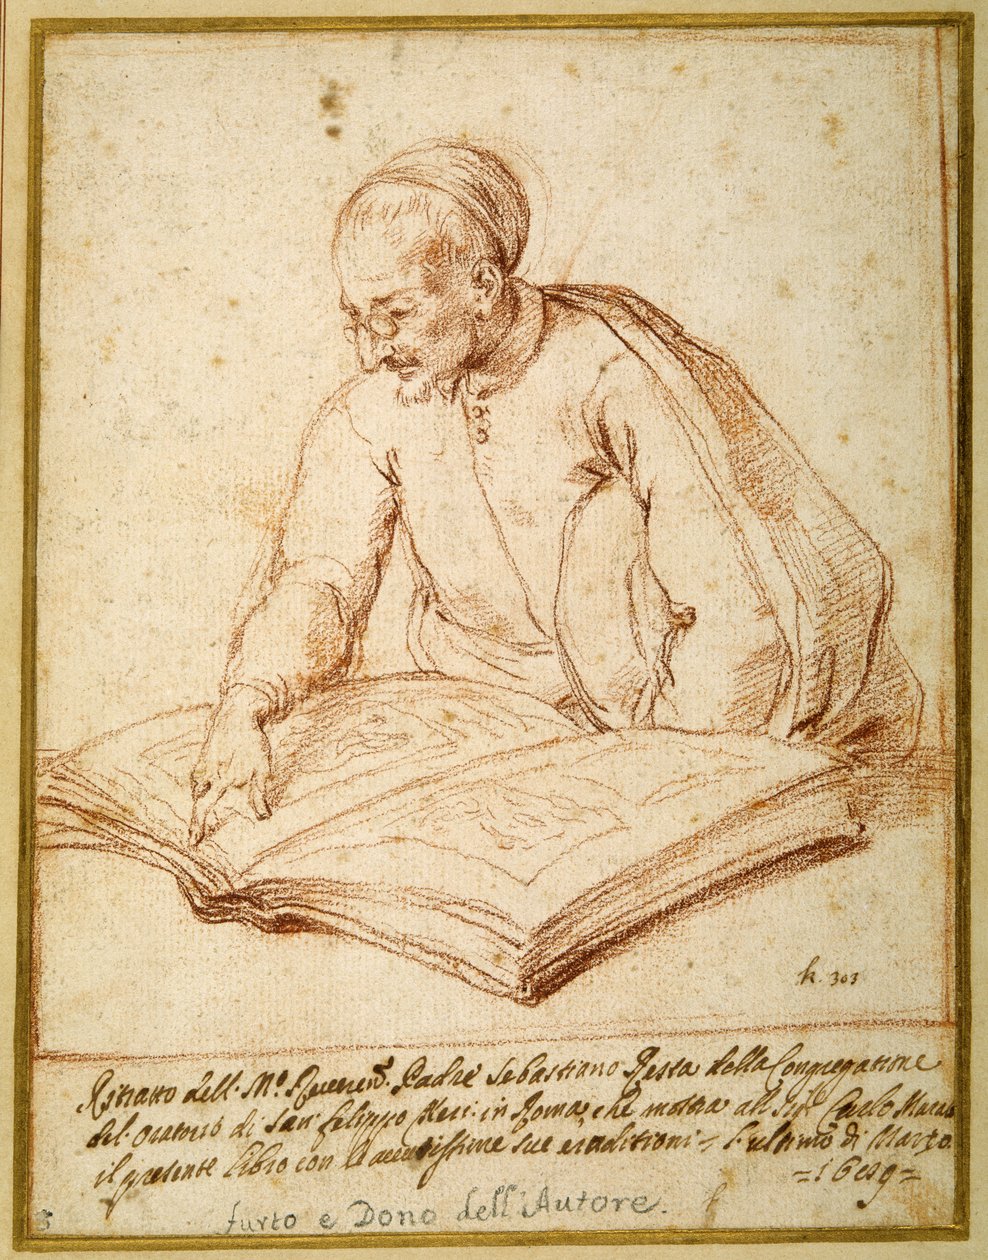 k. 303
Ritratto dell. Mº. Reveren.º Padre Sebastiano Resta della Congregatione
del. Oratorio di San Felippo Neri: in Roma, che mostra all Sig.r Carlo Marat
il presente Libro con le sue eruditioni = l'ultimo di Marzo.
=1689=
furto e Dono dell'Autore.